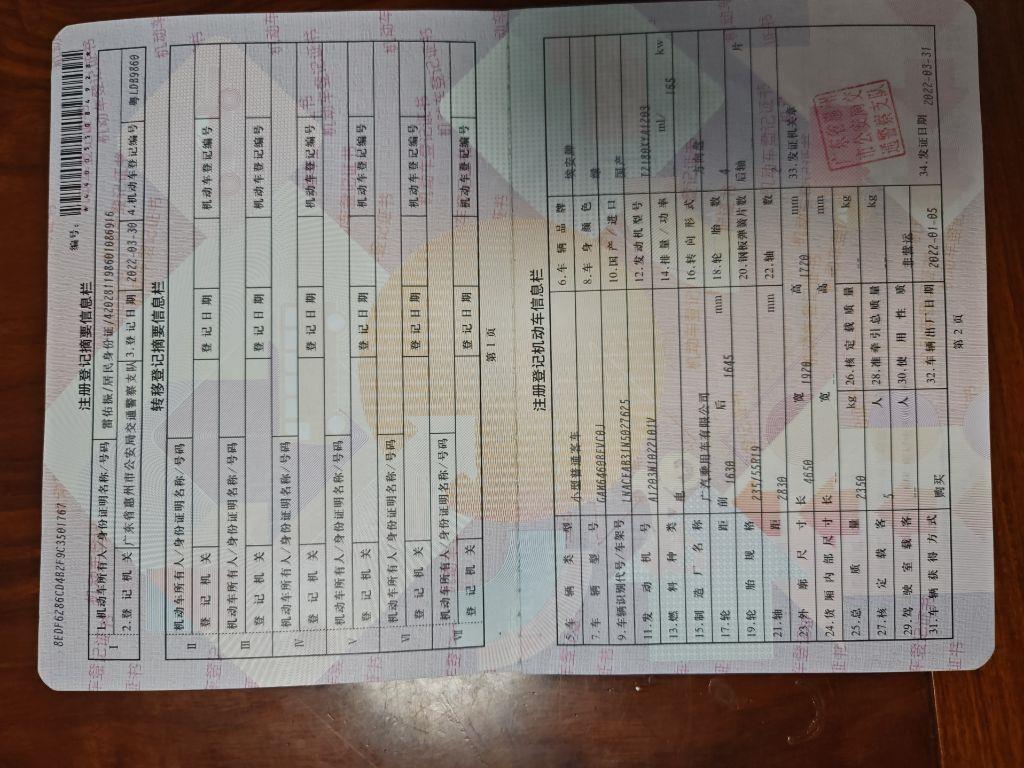 8EDF6286CD4B2F9C3501767
编号:
注册登记摘要信息栏
I 1.机动车所有人/身份证明名称/号码 雷佑振/居民身份证/420281198601086916
2.登记机关 广东省惠州市公安局交通警察支队 3.登记日期 2022-03-30 4.机动车登记编号 粤LDB9860
转移登记摘要信息栏
II 机动车所有人/身份证明名称/号码
登记机关 登记日期 机动车登记编号
III 机动车所有人/身份证明名称/号码
登记机关 登记日期 机动车登记编号
IV 机动车所有人/身份证明名称/号码
登记机关 登记日期 机动车登记编号
V 机动车所有人/身份证明名称/号码
登记机关 登记日期 机动车登记编号
VI 机动车所有人/身份证明名称/号码
登记机关 登记日期 机动车登记编号
VII 机动车所有人/身份证明名称/号码
登记机关 登记日期 机动车登记编号
第 1 页
注册登记机动车信息栏
5.车辆类型 小型普通客车 6.车辆品牌 埃安牌
7.车辆型号 8.车身颜色
9.车辆识别代号/车架号 LNACEAB31N5027625 10.国产/进口 国产
11.发动机号 A1Z03N1022101V 12.发动机型号
13.燃料种类 电 14.排量/功率 ml/ 165 kw
15.制造厂名称 广汽乘用车有限公司 16.转向形式 方向盘
17.轮距 前 1630 后 1645 mm 18.轮胎数 4
19.轮胎规格 235/55R19 20.钢板弹簧片数 后轴 片
21.轴距 2830 mm 22.轴数
23.外廓尺寸 长 4650 宽 1920 高 1720 mm 33.发证机关章
24.货厢内部尺寸 长 宽 高 mm
25.总质量 2350 kg 26.核定载质量 kg
27.核定载客 5 人 28.准牵引总质量 kg
29.驾驶室载客 人 30.使用性质 非营运
31.车辆获得方式 购买 32.车辆出厂日期 2022-01-05 34.发证日期 2022-03-31
第 2 页